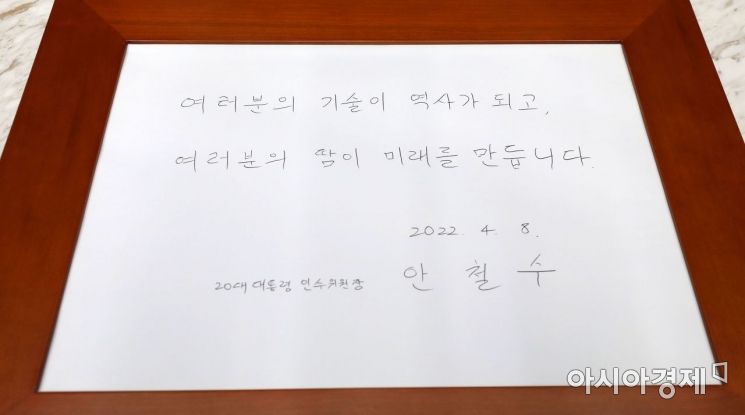 여러분의 기술이 역사가 되고,
여러분의 땀이 미래를 만듭니다.
2022. 4. 8.
20대 대통령 인수위원장 안 철 수
아시아경제